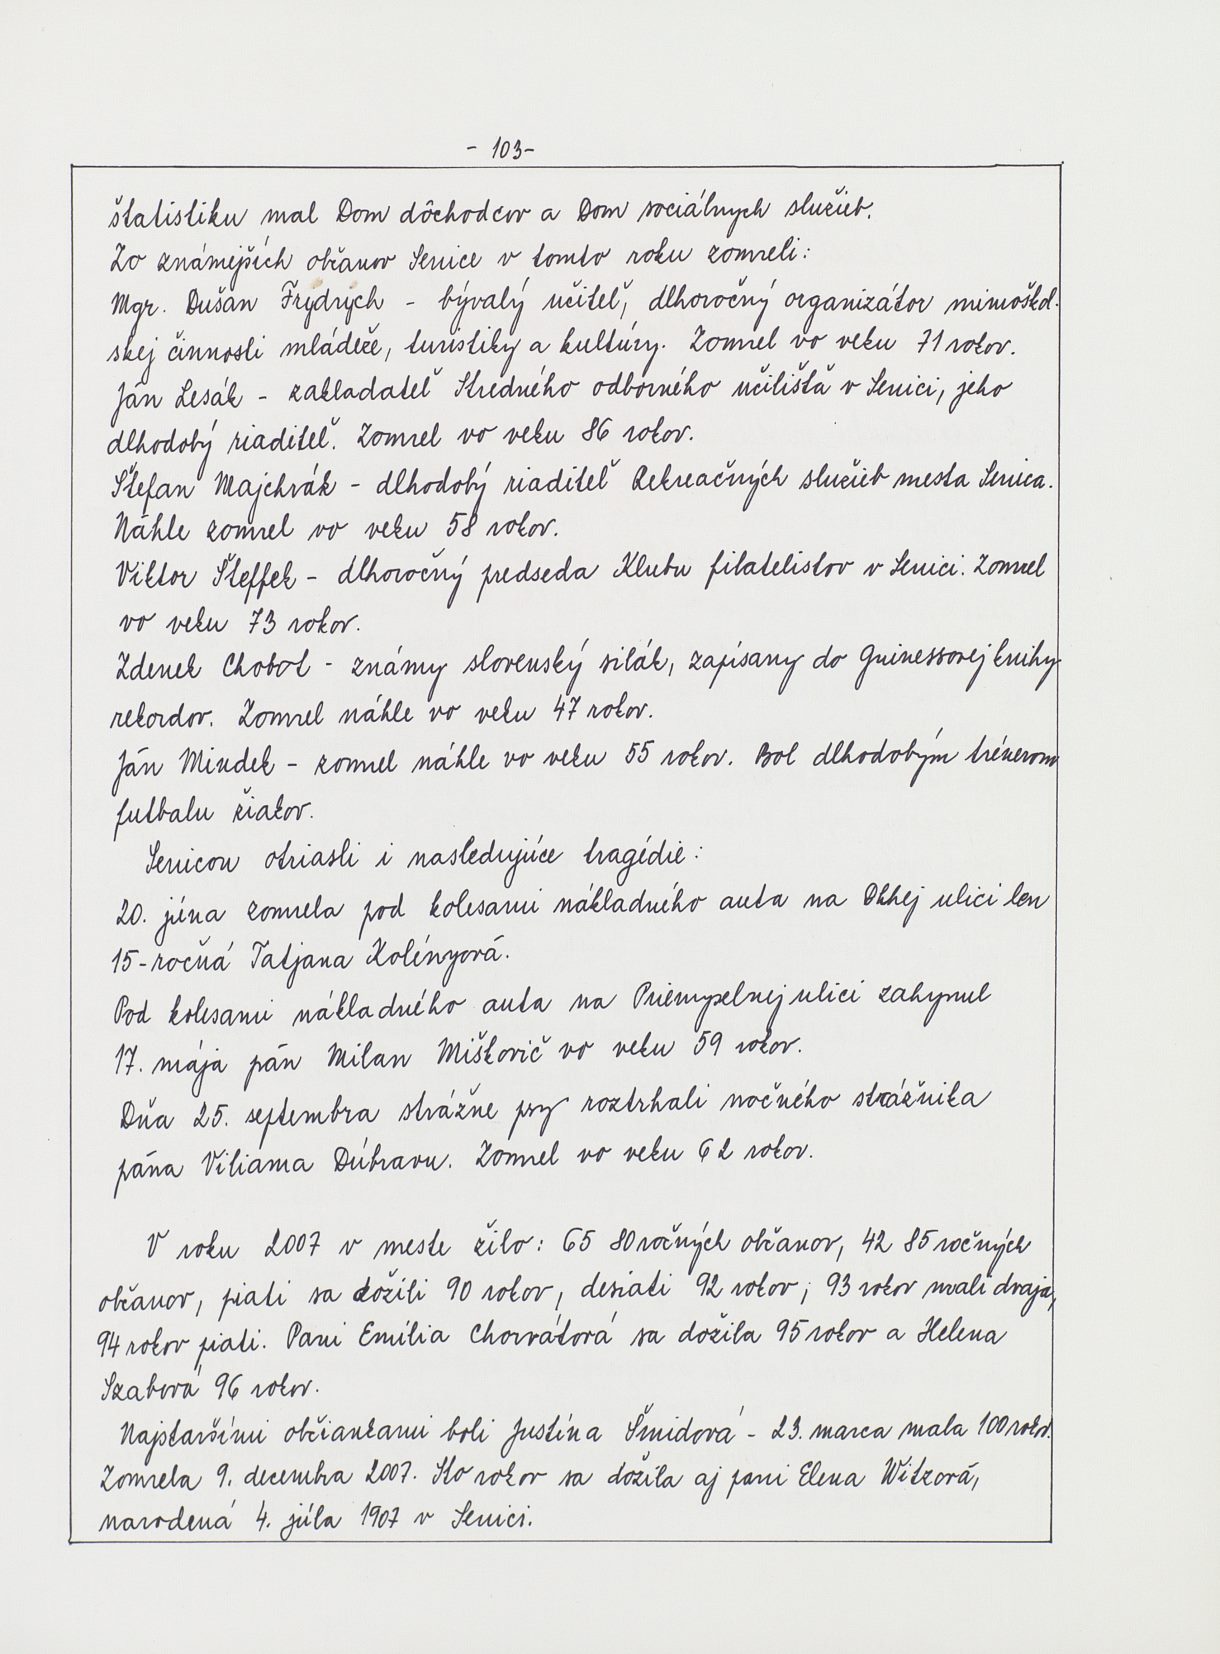 - 103-
štatistiku mal Dom dôchodcov a Dom sociálnych služieb.
Zo známejších občanov Senice v tomto roku zomreli:
Mgr. Dušan Frydrych - bývalý učiteľ, dlhoročný organizátor mimoškol-
skej činnosti mládeže, turistiky a kultúry. Zomrel vo veku 71 rokov.
Ján Lesák - zakladateľ Stredného odborného učilišťa v Senici, jeho
dlhodobý riaditeľ. Zomrel vo veku 86 rokov.
Štefan Majchrák - dlhodobý riaditeľ Rekreačných služieb mesta Senica.
Náhle zomrel vo veku 58 rokov.
Viktor Šteffek - dlhoročný predseda Klubu filatelistov v Senici. Zomrel
vo veku 73 rokov.
Zdenek Chobot - známy slovenský silák, zapísany do Guinessovej knihy
rekordov. Zomrel náhle vo veku 47 rokov.
Ján Mindek - zomrel náhle vo veku 55 rokov. Bol dlhodobým trénerom
futbalu žiakov.
Senicou otriasli i nasledujúce tragédie:
20. júna zomrela pod kolesami nákladného auta na Dlhej ulici len
15-ročná Tatjana Kolényová.
Pod kolesami nákladného auta na Priemyselnej ulici zahynul
17. mája pán Milan Miškovič vo veku 59 rokov.
Dňa 25. septembra strážne psy roztrhali nočného strážnika
pána Viliama Dúbravu. Zomrel vo veku 62 rokov.
V roku 2007 v meste žilo: 65 80 ročných občanov, 42 85 ročných
občanov, piati sa dožili 90 rokov, desiati 92 rokov, 93 rokov mali dvaja,
94 rokov piati. Pani Emília Chorvátová sa dožila 95 rokov a Helena
Szabová 96 rokov.
Najstaršími občiankami boli Justína Šmidová - 23. marca mala 100 rokov.
Zomrela 9. decembra 2007. Sto rokov sa dožila aj pani Elena Witzová,
narodená 4. júla 1907 v Senici.